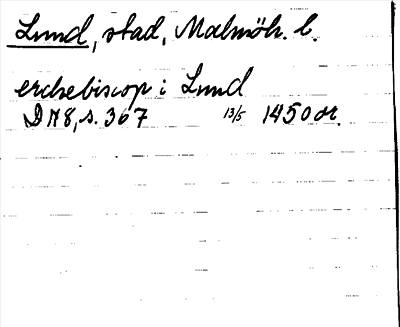 Lund, stad, Malmöh. l.
erchebiscop i Lund
DN 8, s. 367 13/5 1450 or.